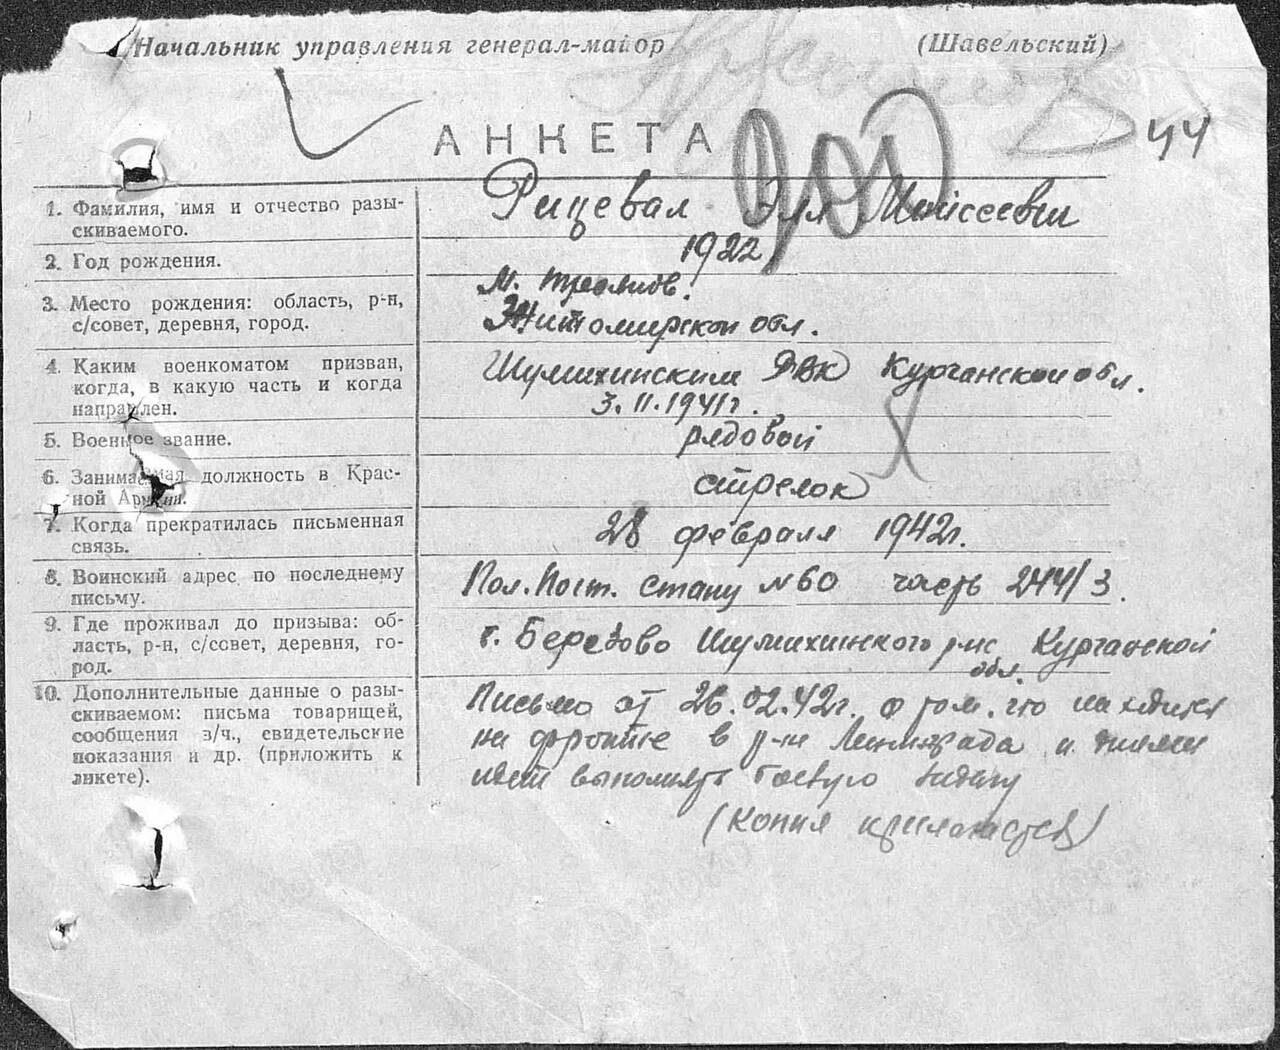 Начальник управления генерал-майор (Шавельский)
44
АНКЕТА
1. Фамилия, имя и отчество разы-
скиваемого.
Рицевал Эля Моисеевич
2. Год рождения.
1922
3. Место рождения: область, р-н,
с/совет, деревня, город.
м.
Житомирской обл.
4. Каким военкоматом призван,
когда, в какую часть и когда
направлен.
Шумихинским РВК Курганской обл.
3.11.1941г.
5. Военное звание.
рядовой
6. Занимаемая должность в Крас-
ной Армии.
стрелок
7. Когда прекратилась письменная
связь.
28 февраля 1942г.
8. Воинский адрес по последнему
письму.
Пол. Пост. станц N 60 часть 244/3.
9. Где проживал до призыва: об-
ласть, р-н, с/совет, деревня, го-
род.
Березово Шумихинского р-на Курганской
обл.
10. Дополнительные данные о разы-
скиваемом: письма товарищей,
сообщения з/ч., свидетельские
показания и др. (приложить к
анкете).
Письмо от 26.02.42г. о том, что находится
на фронте в р-не Ленинграда и
идти выполнять боевую задачу
(копия прилагается)